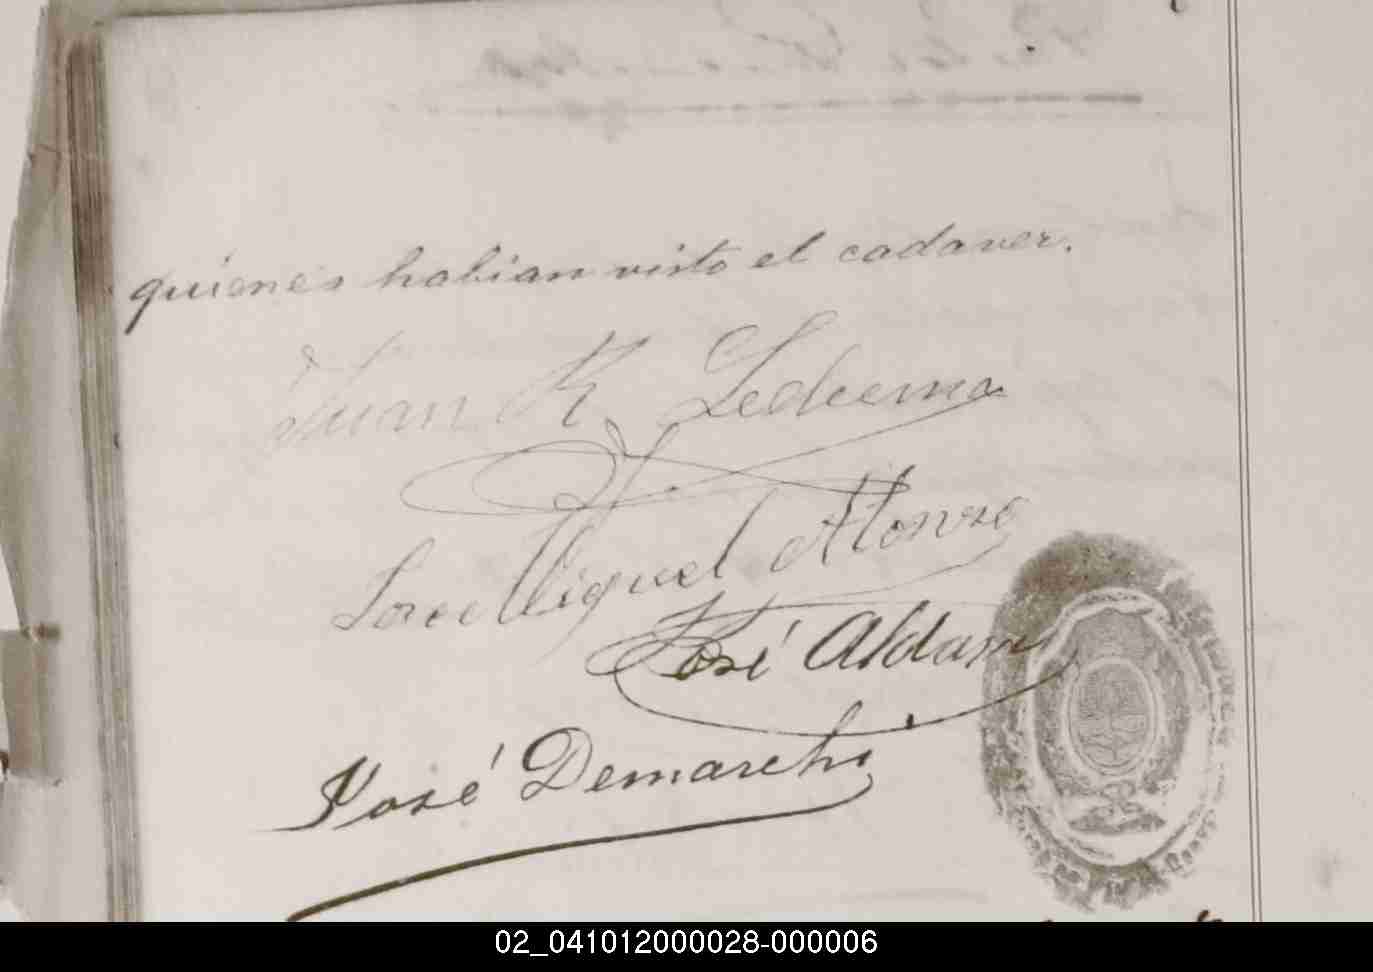 quienes habian visto el cadaver.
Juan R. Ledesma
José Miguel Alonso
José Aldan
José Demarchi
02_041012000028-000006